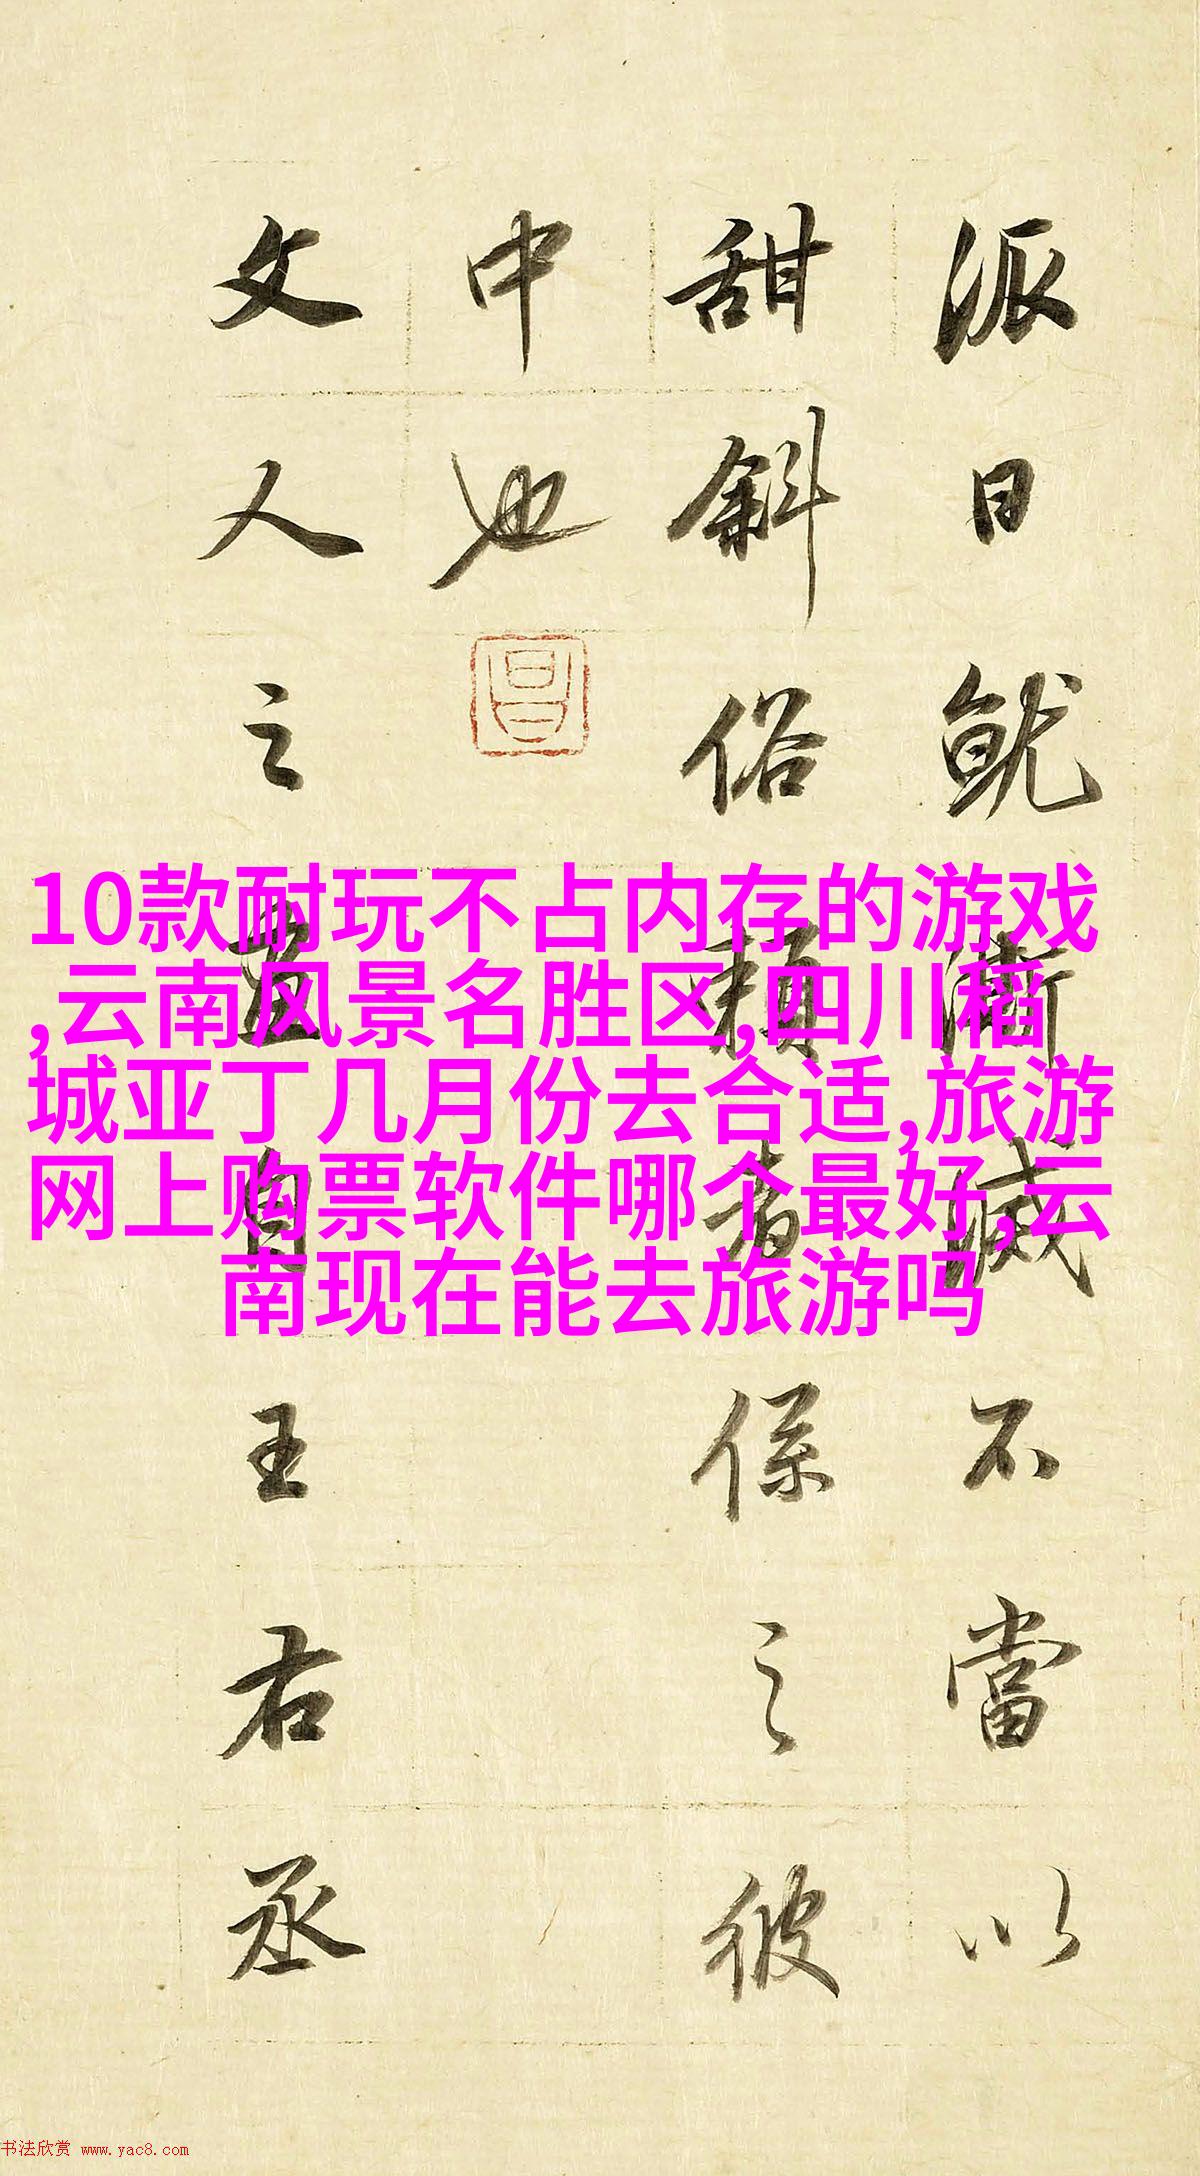 派日就漸滅不當以
甜斜俗賴者係之彼
中也
昌
文人之畫自王右丞
10款耐玩不占内存的游戏
,云南风景名胜区,四川稻
城亚丁几月份去合适,旅游
网上购票软件哪个最好,云
南现在能去旅游吗
书法欣赏 www.yac8.com